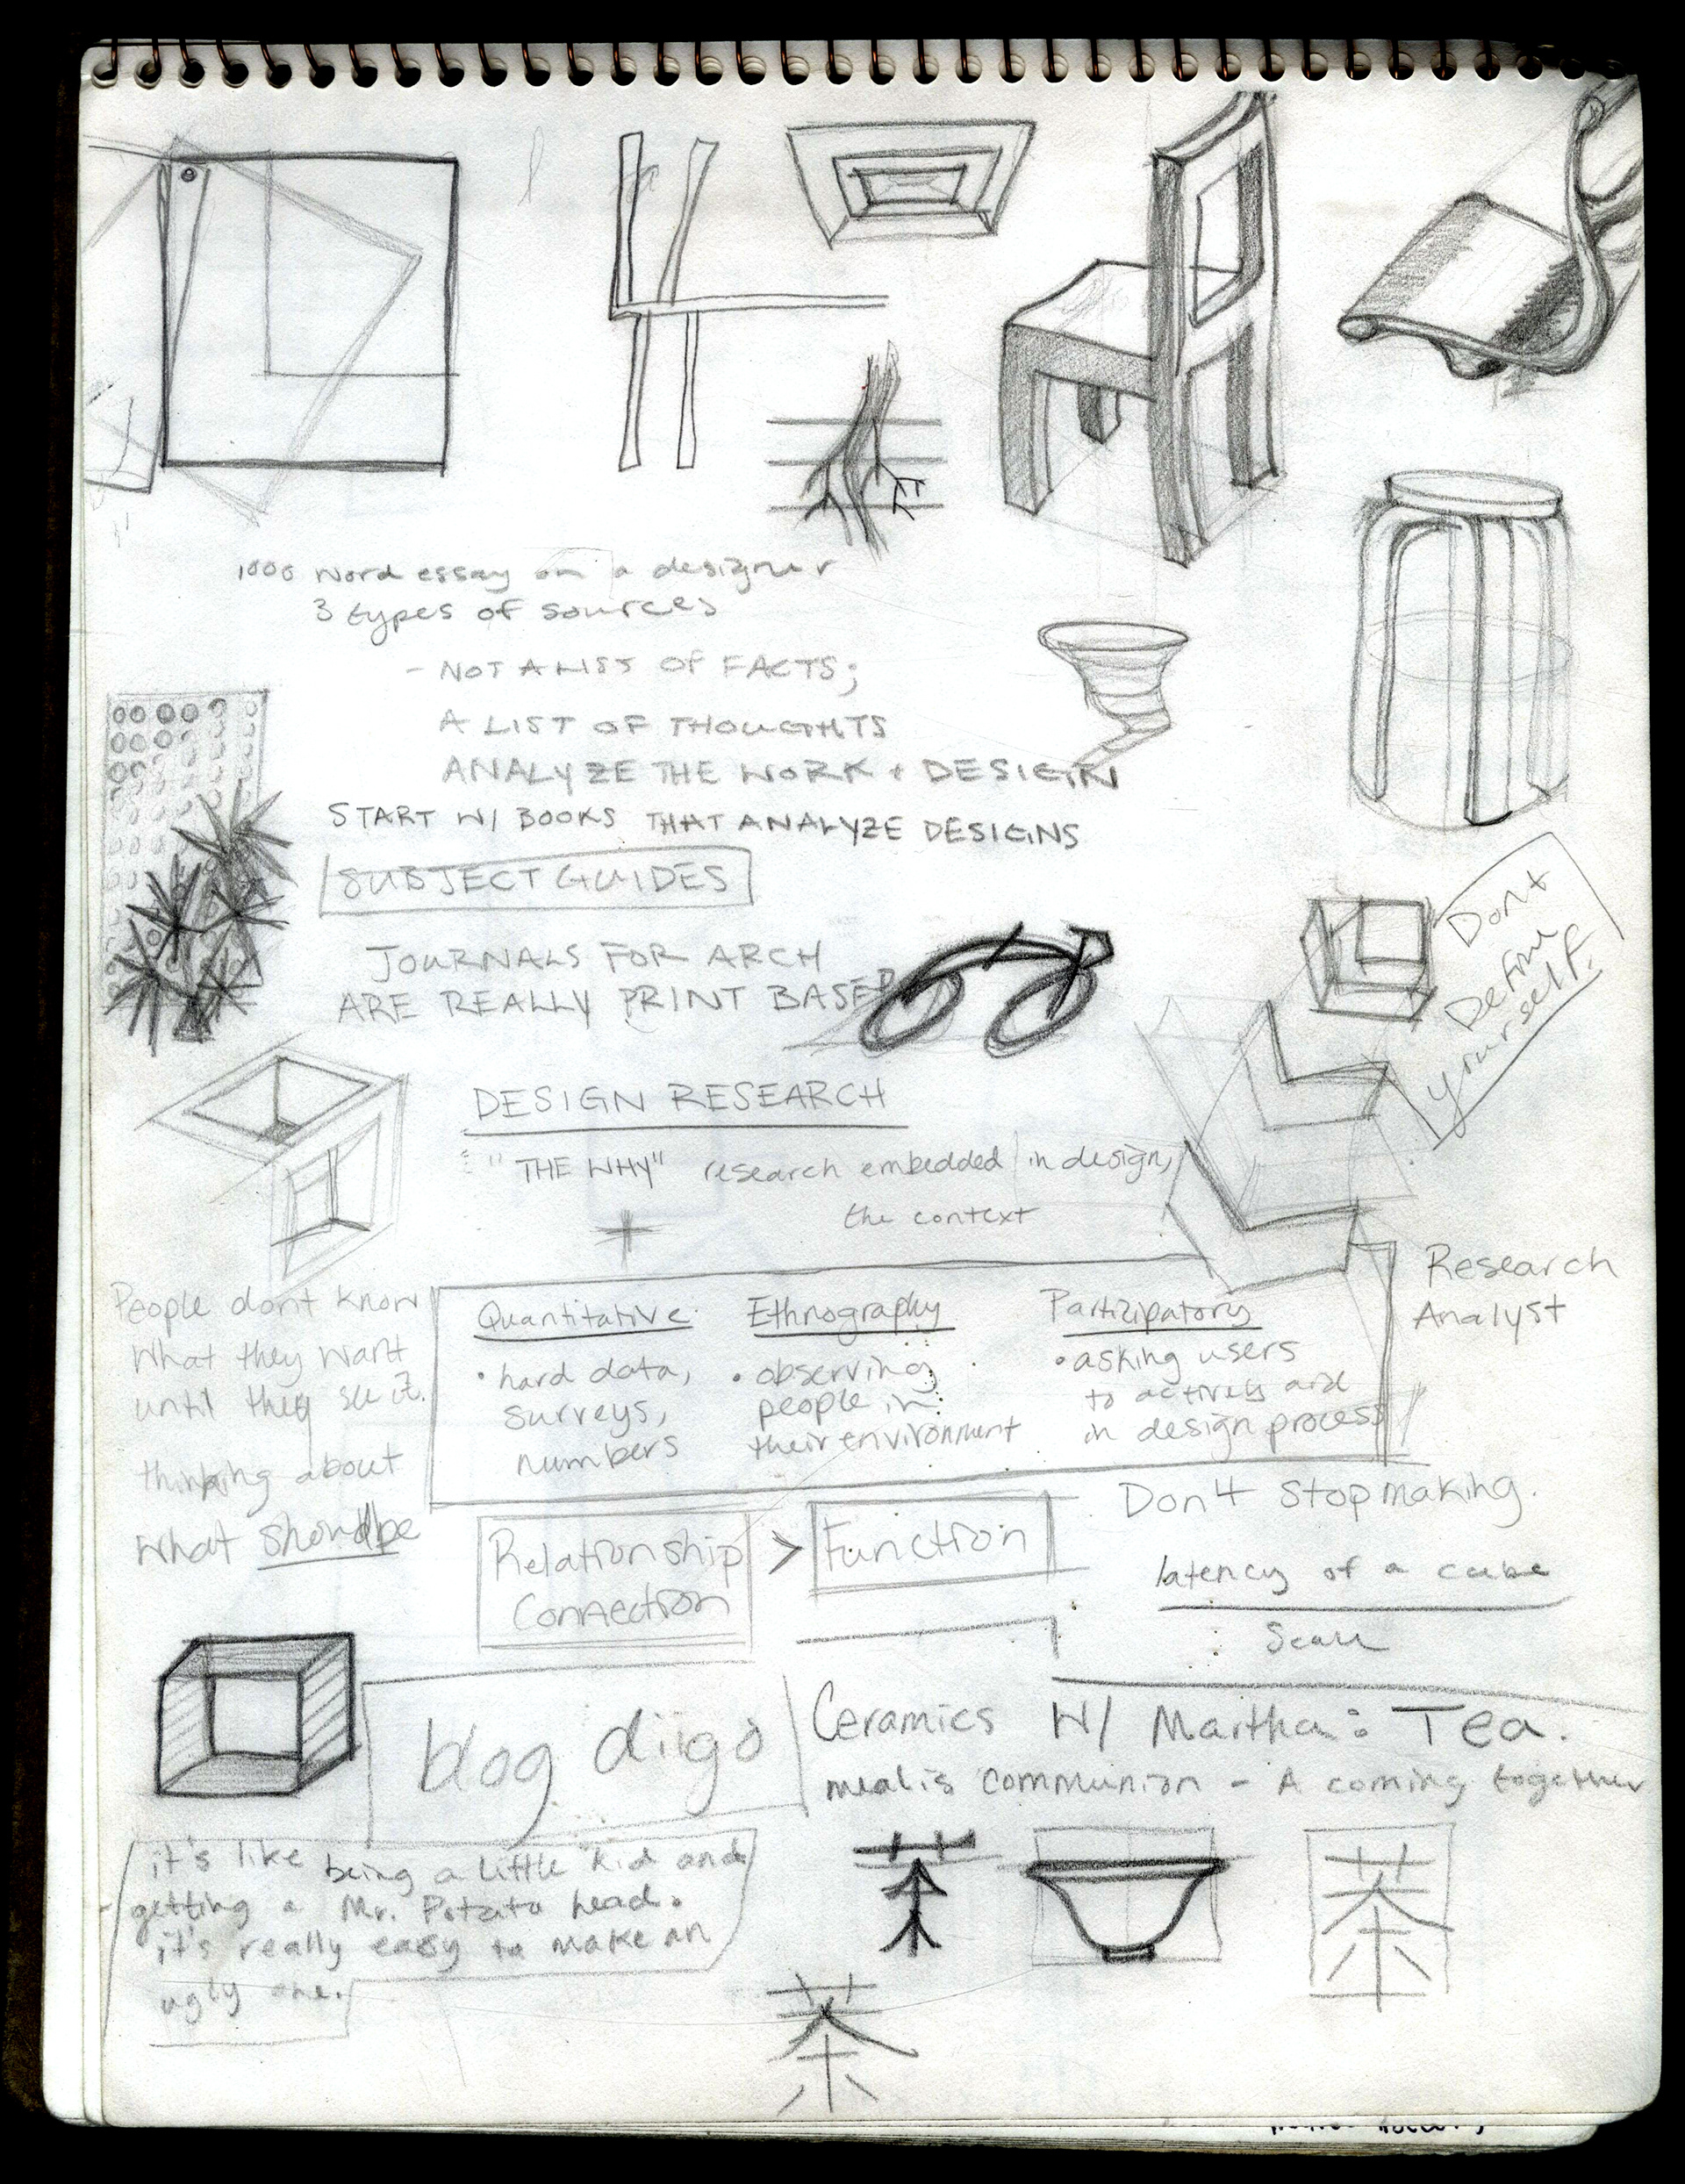 1000 word essay on a designer
3 types of sources
- NOT A LIST OF FACTS;
A LIST OF THOUGHTS
ANALYZE THE WORK + DESIGN
START W/ BOOKS THAT ANALYZE DESIGNS
SUBJECT GUIDES
JOURNALS FOR ARCH
ARE REALLY PRINT BASED
Don't
Define
yourself.
DESIGN RESEARCH
"THE WHY" research embedded in design,
the context
+
People don't know
what they want
until they see it.
thinking about
what should be
Quantitative
• hard data,
surveys,
numbers
Ethnography
• observing
people in
their environment
Participatory
• asking users
to actively
in design process
Research
Analyst
Relationship
Connection
>
Function
Don't stop making.
latency of a cube
blog diigo
Ceramics W/ Martha: Tea.
meal is communion - A coming together
it's like being a little kid and
getting a Mr. Potato head.
it's really easy to make an
ugly one.
茶
茶
茶